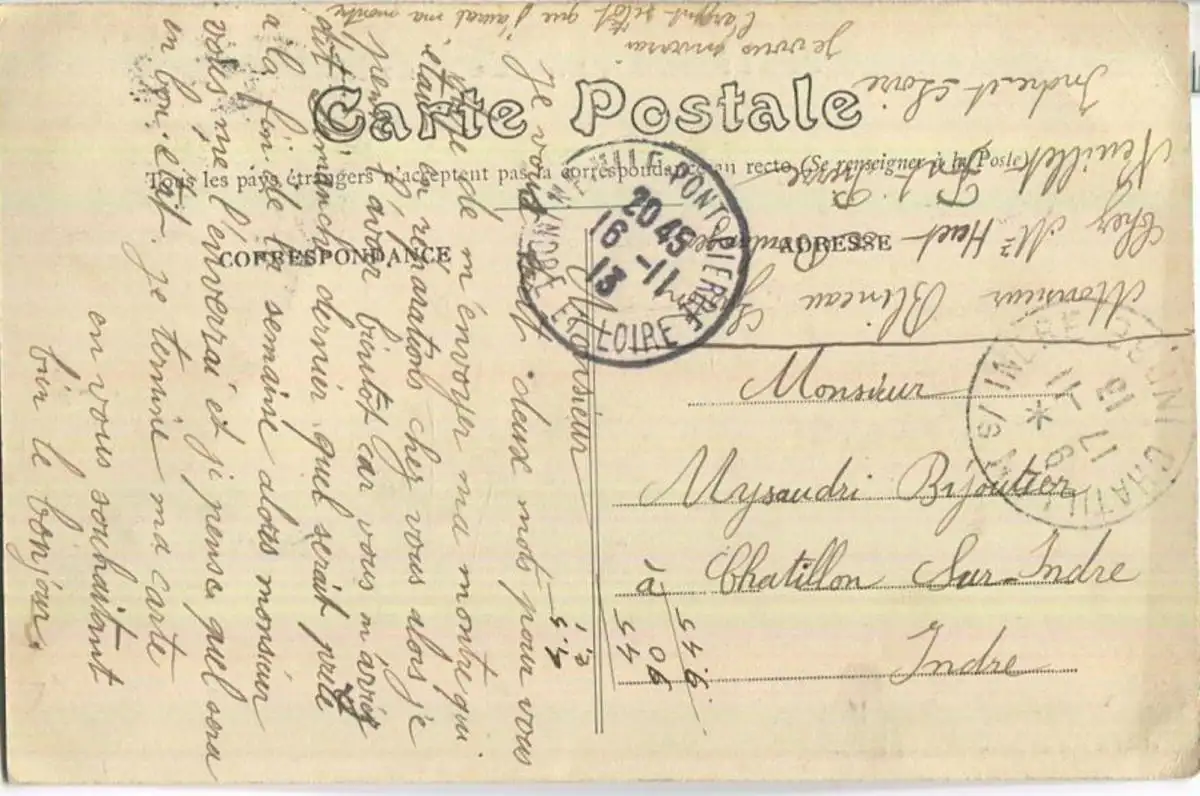 Carte Postale
Tous les pays étrangers n'acceptent pas la correspondance au recto (Se renseigner à la Poste)
CORRESPONDANCE
ADRESSE
Monsieur
je vous deux mots pour vous
de m'envoyer ma montre qui
était en réparations chez vous alors je
pense l'avoir bintot car vous m'aviez
dit dimanche dernier quel serait prete
a la fin de la semaine alors monsieur
vous me l'enverrai et j pense quel sera
en bon état. je termine ma carte
en vous souhaitant
bien le bonjour.
Je vous enverrai
l'argent sitôt que j'aurai ma montre
Monsieur Blineau
Chez Mr Huet Boulanger
Neuillet Pont Pierre
Indre et Loire
NEUILLE PONT PIERRE
20 45
16 -11
13
INDRE ET LOIRE
Monsieur
Mysaudri Bijoutier
à Chatillon Sur-Indre
Indre
CHATILLON S/ INDRE
17 -11
13
*
INDRE
5.45
90
45